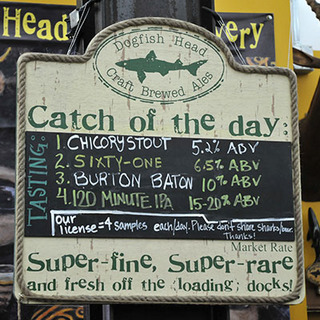 Head
ery
Dogfish Head
Craft Brewed Ales
Catch of the day:
TASTING:
1. CHICORY STOUT 5.2% ABV
2. SIXTY-ONE 6.5% ABV
3. BURTON BATON 10% ABV
4. 120 MINUTE IPA 15-20% ABV
our
license=4 samples each/day. Please don't share sharks/beer
Thanks!
Market Rate
Super-fine, Super-rare
and fresh off the loading docks!